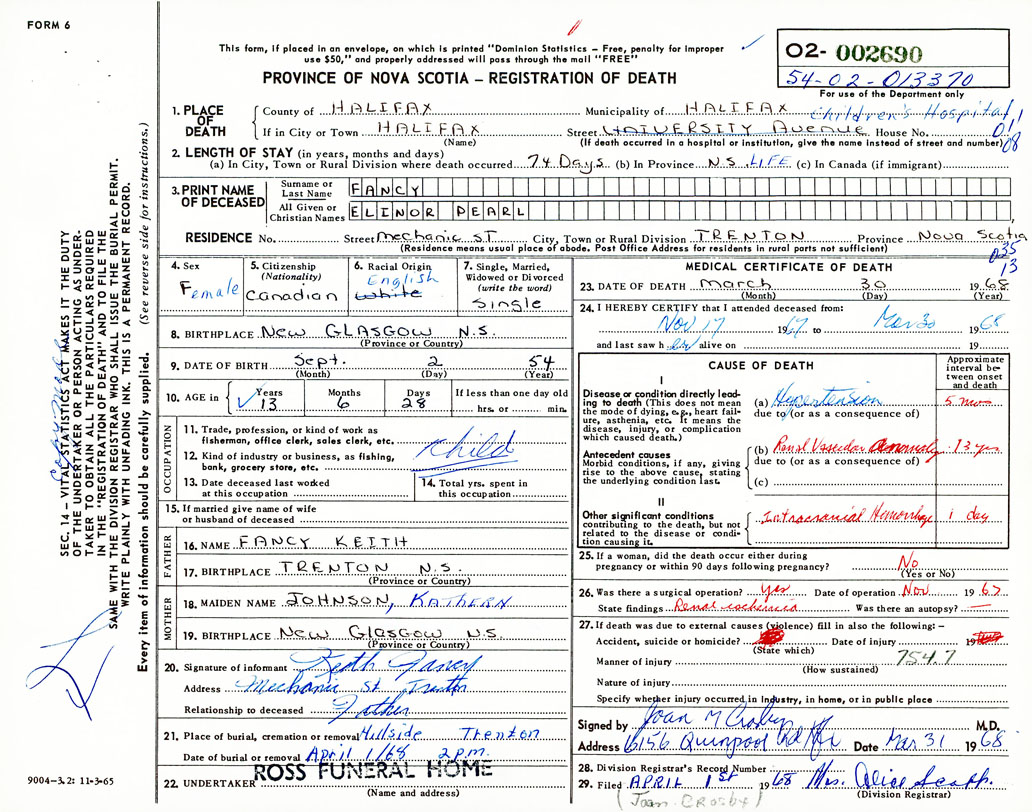 FORM 6
This form, if placed in an envelope, on which is printed "Dominion Statistics – Free, penalty for improper
use $50," and properly addressed will pass through the mail "FREE"
PROVINCE OF NOVA SCOTIA – REGISTRATION OF DEATH
02- 002690
54-02-013370
For use of the Department only
1. PLACE OF DEATH
County of HALIFAX Municipality of HALIFAX Children's Hospital
If in City or Town HALIFAX Street UNIVERSITY Avenue House No. 01
(Name) (If death occurred in a hospital or institution, give the name instead of street and number) 08
2. LENGTH OF STAY (in years, months and days)
(a) In City, Town or Rural Division where death occurred 74 Days (b) In Province N.S. LIFE (c) In Canada (if immigrant)
3. PRINT NAME OF DECEASED
Surname or Last Name FANCY
All Given or Christian Names ELINOR PEARL
RESIDENCE No. Street Mechanic ST City, Town or Rural Division TRENTON Province Nova Scotia
(Residence means usual place of abode. Post Office Address for residents in rural parts not sufficient)
35
13
4. Sex
Female
5. Citizenship
(Nationality)
Canadian
6. Racial Origin
English
White
7. Single, Married,
Widowed or Divorced
(write the word)
Single
8. BIRTHPLACE New GLASGOW N.S.
(Province or Country)
9. DATE OF BIRTH Sept. 2 54
(Month) (Day) (Year)
10. AGE in
Years 13
Months 6
Days 28
If less than one day old
hrs. or min.
OCCUPATION
11. Trade, profession, or kind of work as
fisherman, office clerk, sales clerk, etc.
12. Kind of industry or business, as fishing,
bank, grocery store, etc.
Child
13. Date deceased last worked
at this occupation
14. Total yrs. spent in
this occupation
15. If married give name of wife
or husband of deceased
FATHER
16. NAME FANCY KEITH
17. BIRTHPLACE TRENTON N.S.
(Province or Country)
MOTHER
18. MAIDEN NAME JOHNSON, KATHERN
19. BIRTHPLACE New Glasgow N.S.
(Province or Country)
20. Signature of informant Keith Fancy
Address Mechanic St Trenton
Relationship to deceased Father
21. Place of burial, cremation or removal Hillside Trenton
Date of burial or removal April 1/68 2 p.m.
22. UNDERTAKER ROSS FUNERAL HOME
(Name and address)
MEDICAL CERTIFICATE OF DEATH
23. DATE OF DEATH March 30 1968
(Month) (Day) (Year)
24. I HEREBY CERTIFY that I attended deceased from:
Nov 17 1967 to Mar 30 1968
and last saw her alive on 19
CAUSE OF DEATH
Approximate
interval be-
tween onset
and death
I
Disease or condition directly lead-
ing to death (This does not mean
the mode of dying, e.g., heart fail-
ure, asthenia, etc. It means the
disease, injury, or complication
which caused death.)
(a) Hypertension 5 mos
due to (or as a consequence of)
Antecedent causes
Morbid conditions, if any, giving
rise to the above cause, stating
the underlying condition last.
(b) Renal Vascular Anomaly 13 yrs
due to (or as a consequence of)
(c)
II
Other significant conditions
contributing to the death, but not
related to the disease or condi-
tion causing it.
Intracranial Hemorrhage 1 day
25. If a woman, did the death occur either during
pregnancy or within 90 days following pregnancy? No
(Yes or No)
26. Was there a surgical operation? yes Date of operation Nov 1967
State findings Renal ischemia Was there an autopsy? —
27. If death was due to external causes (violence) fill in also the following: –
Accident, suicide or homicide? Date of injury 19
(State which)
Manner of injury 754.7
(How sustained)
Nature of injury
Specify whether injury occurred in Industry, in home, or in public place
Signed by Joan M Crosby M.D.
Address 6156 Quinpool Rd Hfx Date Mar 31 1968
28. Division Registrar's Record Number
29. Filed APRIL 1st 1968 Mrs. Alice
(Division Registrar)
(Joan Crosby)
SEC. 14 – VITAL STATISTICS ACT MAKES IT THE DUTY
OF THE UNDERTAKER OR PERSON ACTING AS UNDER-
TAKER TO OBTAIN ALL THE PARTICULARS REQUIRED
IN THE "REGISTRATION OF DEATH" AND TO FILE THE
SAME WITH THE DIVISION REGISTRAR WHO SHALL ISSUE THE BURIAL PERMIT.
WRITE PLAINLY WITH UNFADING INK. THIS IS A PERMANENT RECORD.
Every item of information should be carefully supplied. (See reverse side for instructions.)
9004-3.2: 11-3-65